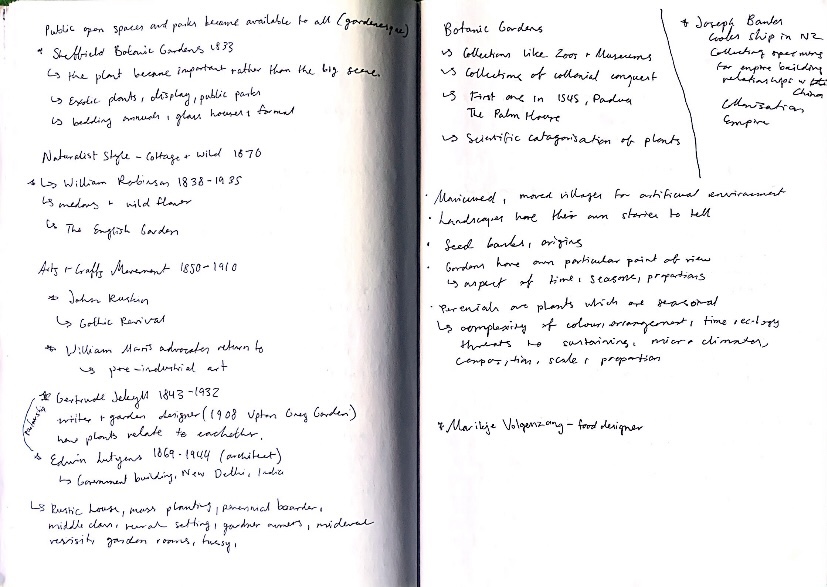 Public open spaces and parks became available to all (gardenesque)
* Sheffield Botanic Gardens 1833
↳ the plant became important rather than the big scene.
↳ Exotic plants, display, public parks
↳ bedding annuals, glass houses, formal
Naturalist Style - Cottage + Wild 1870
* ↳ William Robinson 1838-1935
↳ medow + wild flower
↳ The English Garden
Arts + Crafts Movement 1850-1910
* John Ruskin
↳ Gothic Revival
* William Moris advocates return to
↳ pre-industrial art
* Gertrude Jekyll 1843-1932
writer + garden designer (1908 Upton Grey Garden)
how plants relate to eachother.
* Edwin Lutyens 1869-1944 (architect)
↳ Government building, New Delhi, India
↳ Rustic house, mass planting, perennial boarder,
middle class, rural setting, gardner owners,
revisit, garden rooms,
Botanic Gardens
↳ Collections like Zoos + Museums
↳ Collections of collonial conquest
↳ First one in 1545, Padua
The Palm House
↳ Scientific catagorisation of plants
* Joseph Banks
Cooks ship in NZ
Collecting specimens
for empire building
relationships w the
China
Colonisation
Empire
· Manicured, moved villages for artificial environment
· Landscapes have their own stories to tell
· Seed banks, origins
· Gardens have own particular point of view
↳ aspect of time, seasons, proportions
· Perenials are plants which are seasonal
↳ complexity of colour, arrangement, time, ecology
threats to sustaining, micro climates,
composition, scale + proportion
* Marije Volgenzang - food designer